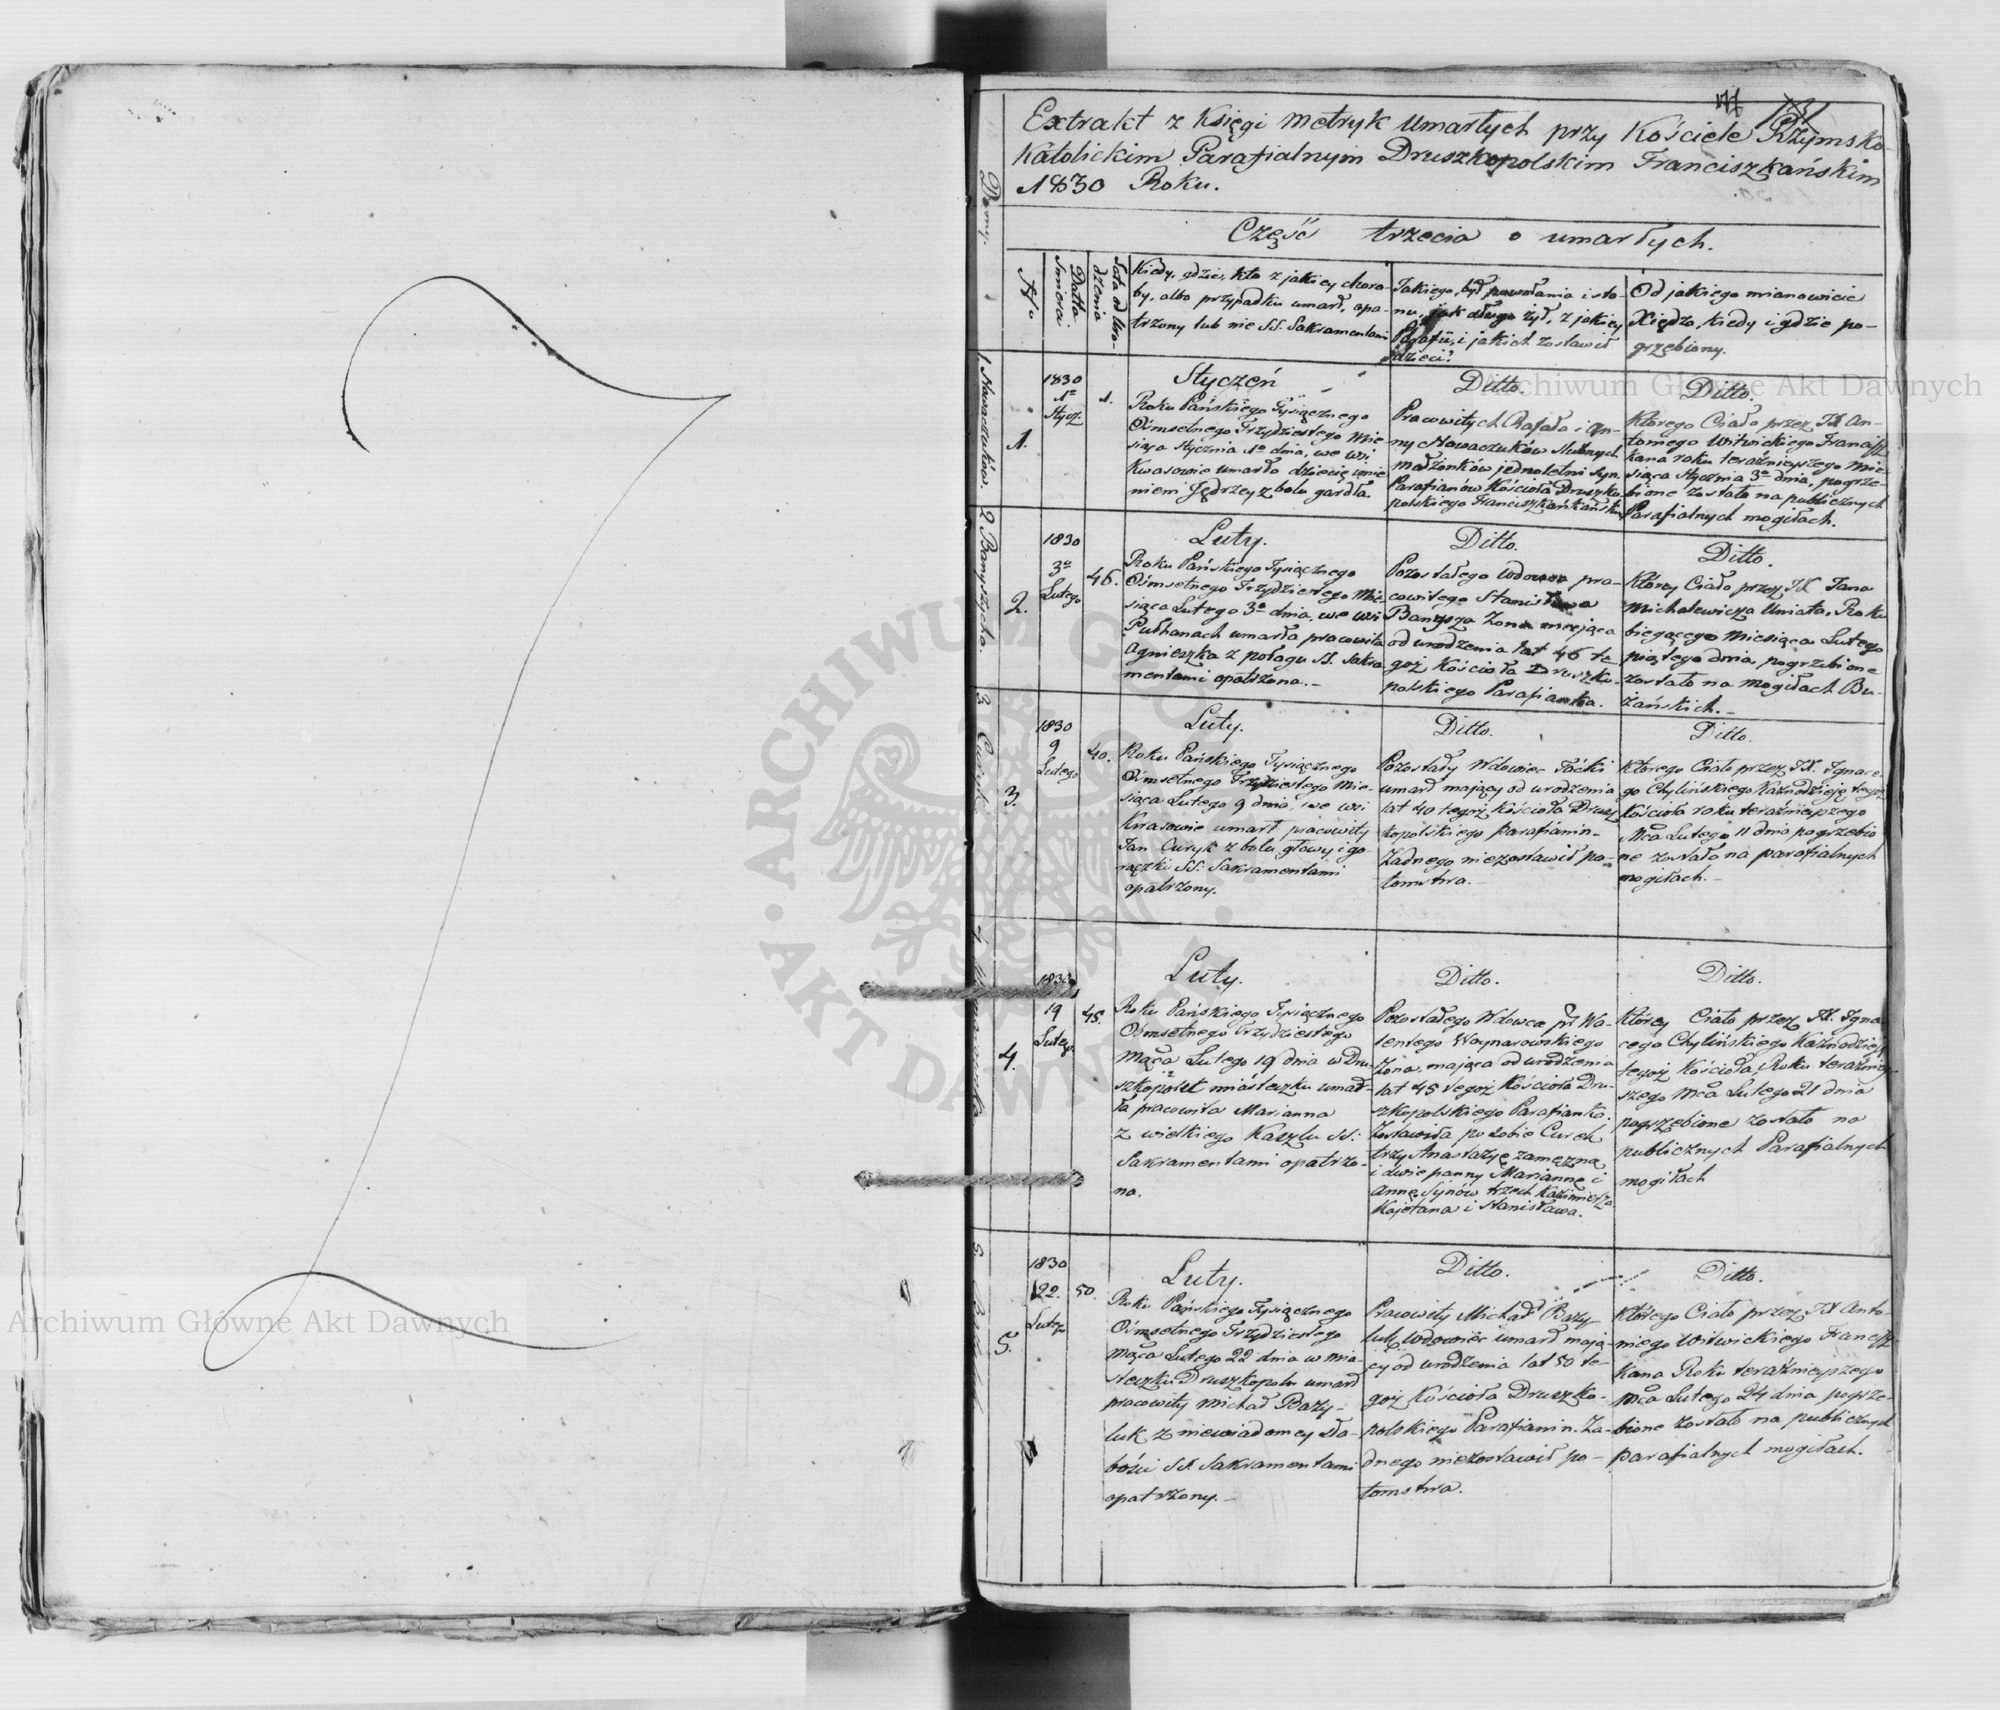 171 131
Extrakt z Księgi Metryk Umarłych przy Kościele Rzymsko-
Katolickim Parafialnym Druszkopolskim Franciszkańskim
1830 Roku.
Część trzecia o umarłych.
Domy.
No
Datta Śmierci.
Lata od Uro-
dzenia
Kiedy, gdzie, kto z jakiey choro
by, albo przypadku umarł, opa-
trzony lub nie SS. Sakramentami
Jakiego, był powołania i sta-
nu, jak długo żył, z jakiey
Parafii, i jakich zostawił
dzieci?
Od jakiego mianowicie
Xiędza, kiedy i gdzie po-
grzebiony.
1. Nowaczuków.
1.
1830
1o
Stycz
1.
Styczeń
Roku Pańskiego Tysiącznego
Ośmsetnego Trzydziestego Mie-
siąca Stycznia 1o dnia, we wsi
Kwasowie umarło dziecię imie
niem Jędrzey z bolu gardła.
Ditto.
Pracowitych Rafała i An-
ny Nowaczuków ślubnych
małżonków jednoletni syn.
Parafianów Kościoła Druszko
polskiego
Ditto.
Którego Ciało przez JX An-
toniego Witwickiego Francisz
kana roku teraźnieyszego Mie
siąca Stycznia 3o dnia, pogrze-
bione zostało na publicznych
Parafialnych mogiłach.
2 Banyszycha.
2.
1830
3o
Lutego
46.
Luty.
Roku Pańskiego Tysiącznego
Ośmsetnego Trzydziestego Mie-
siąca Lutego 3o dnia, we wsi
Pułhanach umarła pracowita
Agnieszka z połagu SS. Sakra
mentami opatrzona.-
Ditto.
Pozostałego wdowca pra-
cowitego Stanisława
Banysza żona mająca
od urodzenia lat 46 te-
goż Kościoła Druszko-
polskiego Parafianka.
Ditto.
Którey Ciało przez JX Jana
Michalewicza Uniata, Roku
biegącego Miesiąca Lutego
piątego dnia, pogrzebione
zostało na mogiłach Bu-
żańskich.-
3. Curyk
3.
1830
9
Lutego
40.
Luty.
Roku Pańskiego Tysiącznego
Ośmsetnego Trzydziestego Mie-
siąca Lutego 9 dnia, we wsi
Kwasowie umarł pracowity
Jan Curyk z bolu głowy i go-
rączki SS. Sakramentami
opatrzony.
Ditto.
Pozostały Wdowiec
umarł mający od urodzenia
lat 40 tegoż Kościoła Drusz
kopolskiego parafianin-
żadnego niezostawił po-
tomstwa.-
Ditto.
Którego Ciało przez JX. Ignace
go Chylińskiego Kaznodzieję tegoż
Kościoła roku teraźnieyszego
Mca Lutego 11 dnia pogrzebio
ne zostało na parafialnych
mogiłach.-
4.
4.
1830
19
Lutego
45.
Luty.
Roku Pańskiego Tysiącznego
Ośmsetnego Trzydziestego
Mąca Lutego 19 dnia w Dru-
szkopolu miasteczku umar-
ła pracowita Marianna
z wielkiego Kaszlu SS:
Sakramentami opatrzo-
na.
Ditto.
Pozostałego Wdowca pr Wa-
lentego Woynarowskiego
Żona, mająca od urodzenia
lat 45 tegoż Kościoła Dru-
szkopolskiego Parafianka.
Zostawiła po sobie Curek
trzy Anastazyę zamężną
i dwie panny Mariannę i
Annę, Synów trzech Kazimierza
Kajetana i Stanisława.
Ditto.
Którey Ciało przez JX. Igna
cego Chylińskiego Kaznodzieję
tegoż Kościoła, Roku teraźniey-
szego Mca Lutego 21 dnia
pogrzebione zostało na
publicznych Parafialnych
mogiłach
5.
5.
1830
22.
Luteg
50.
Luty.
Roku Pańskiego Tysiącznego
Ośmsetnego Trzydziestego
Mąca Lutego 22 dnia w mia-
steczku Druszkopolu umarł
pracowity Michał Bazy-
luk z niewiadomey sła-
bości SS. Sakramentami
opatrzony.-
Ditto.
Pracowity Michał Bazy-
luk wdowiec umarł mają-
cy od urodzenia lat 50 te-
goż Kościoła Druszko-
polskiego Parafianin. Ża-
dnego niezostawił po-
tomstwa.
Ditto.
Którego Ciało przez JX Anto-
niego Witwickiego Francisz
kana Roku teraźnieyszego
Mca Lutego 24 dnia pogrze-
bione zostało na publicznych
parafialnych mogiłach.
Archiwum Główne Akt Dawnych
Archiwum Główne Akt Dawnych